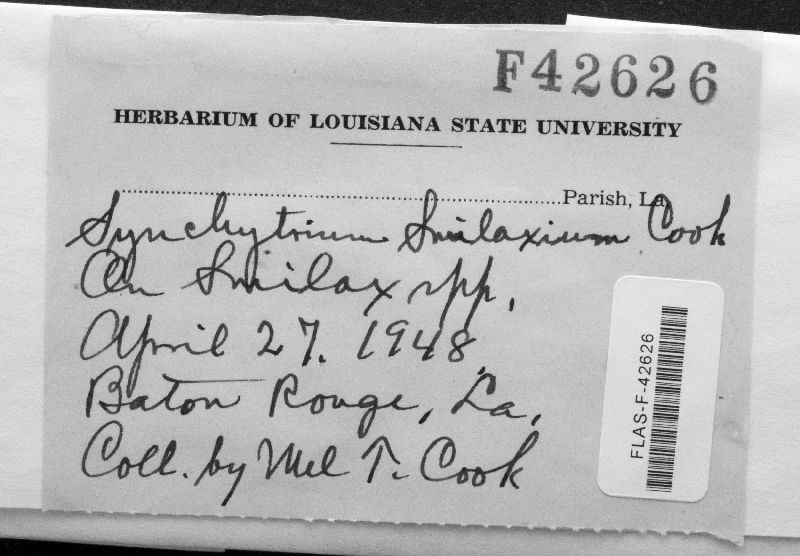 F42626
HERBARIUM OF LOUISIANA STATE UNIVERSITY
Parish, La.
Synchytrium Smilaxium Cook
On Smilax spp.
April 27. 1948
Baton Rouge, La,
Coll. by Mel T. Cook
FLAS-F-42626